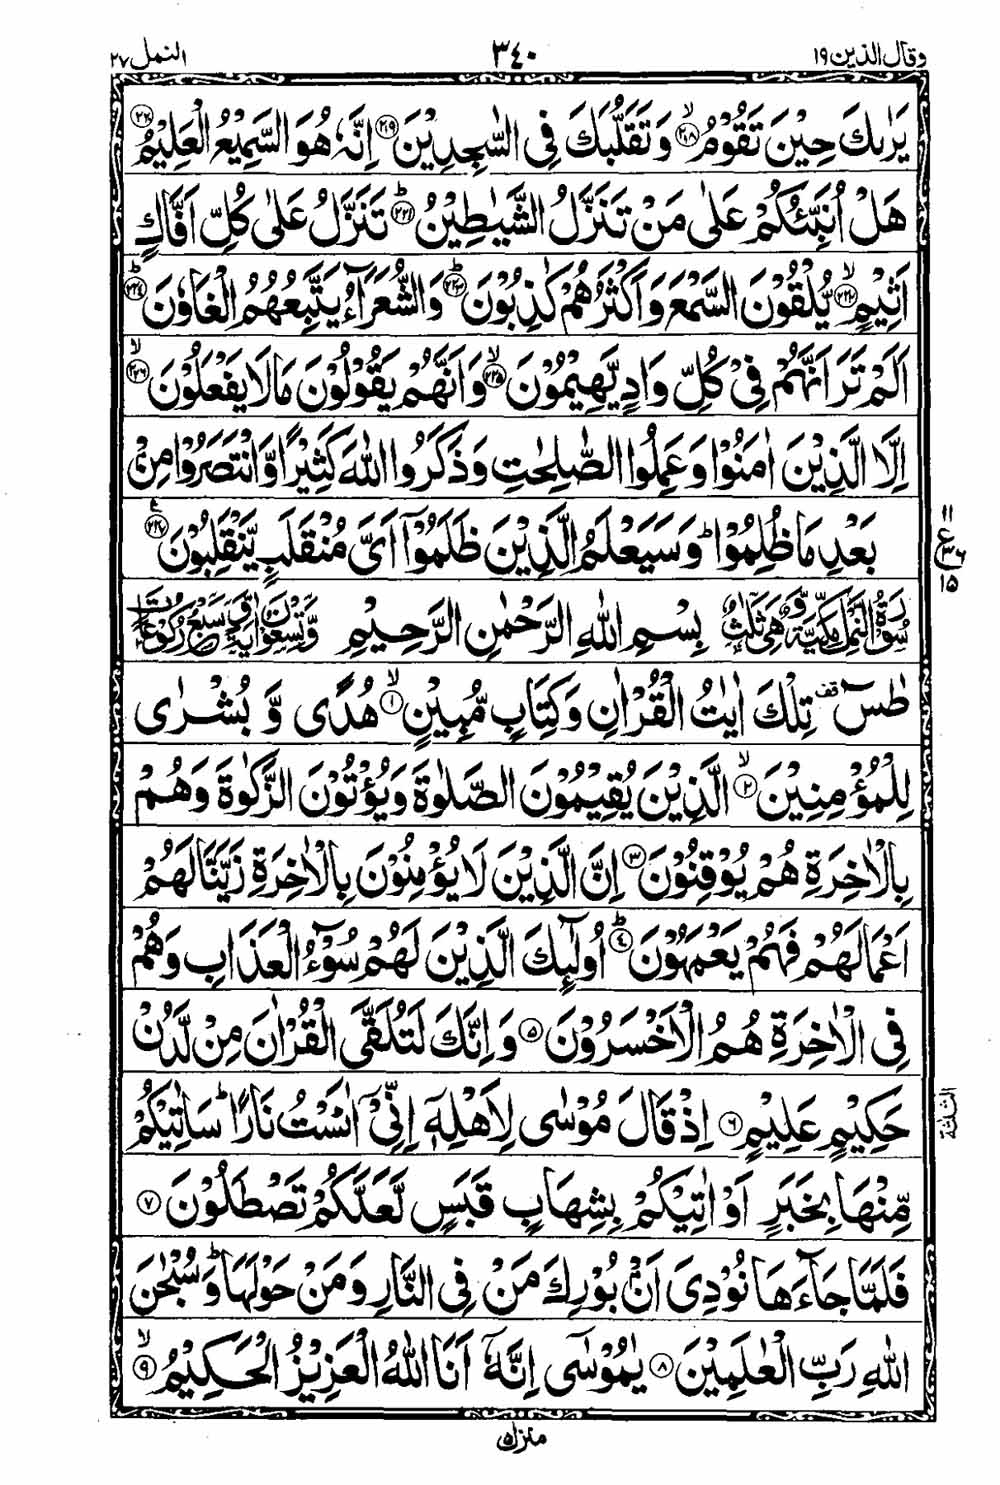 وقال الذين ١٩ ٣٤٠ النمل ٢٧
يَرٰىكَ حِيْنَ تَقُوْمُ ۙ﴿۲۱۸﴾ وَتَقَلُّبَكَ فِى السّٰجِدِيْنَ ﴿۲۱۹﴾ اِنَّهٗ هُوَ السَّمِيْعُ الْعَلِيْمُ ﴿۲۲۰﴾
هَلْ اُنَبِّئُكُمْ عَلٰى مَنْ تَنَزَّلُ الشَّيٰطِيْنُ ؕ﴿۲۲۱﴾ تَنَزَّلُ عَلٰى كُلِّ اَفَّاكٍ
اَثِيْمٍ ۙ﴿۲۲۲﴾ يُّلْقُوْنَ السَّمْعَ وَاَكْثَرُهُمْ كٰذِبُوْنَ ؕ﴿۲۲۳﴾ وَالشُّعَرَآءُ يَتَّبِعُهُمُ الْغَاوٗنَ ؕ﴿۲۲۴﴾
اَلَمْ تَرَ اَنَّهُمْ فِىْ كُلِّ وَادٍ يَّهِيْمُوْنَ ۙ﴿۲۲۵﴾ وَاَنَّهُمْ يَقُوْلُوْنَ مَا لَا يَفْعَلُوْنَ ۙ﴿۲۲۶﴾
اِلَّا الَّذِيْنَ اٰمَنُوْا وَعَمِلُوا الصّٰلِحٰتِ وَذَكَرُوا اللّٰهَ كَثِيْرًا وَّانْتَصَرُوْا مِنْۢ
بَعْدِ مَا ظُلِمُوْا ؕ وَسَيَعْلَمُ الَّذِيْنَ ظَلَمُوْۤا اَىَّ مُنْقَلَبٍ يَّنْقَلِبُوْنَ ﴿۲۲۷﴾ ع
١١ ع ٣٦ ١٥
سُوْرَةُ النَّمْلِ مَكِّيَّةٌ وَّهِىَ ثَلٰثٌ بِسْمِ اللّٰهِ الرَّحْمٰنِ الرَّحِيْمِ وَّتِسْعُوْنَ اٰيَةً وَّسَبْعُ رُكُوْعَاتٍ
طٰسٓ قف تِلْكَ اٰيٰتُ الْقُرْاٰنِ وَكِتَابٍ مُّبِيْنٍ ۙ﴿۱﴾ هُدًى وَّ بُشْرٰى
لِلْمُؤْمِنِيْنَ ۙ﴿۲﴾ الَّذِيْنَ يُقِيْمُوْنَ الصَّلٰوةَ وَيُؤْتُوْنَ الزَّكٰوةَ وَهُمْ
بِالْاٰخِرَةِ هُمْ يُوْقِنُوْنَ ﴿۳﴾ اِنَّ الَّذِيْنَ لَا يُؤْمِنُوْنَ بِالْاٰخِرَةِ زَيَّنَّا لَهُمْ
اَعْمَالَهُمْ فَهُمْ يَعْمَهُوْنَ ؕ﴿۴﴾ اُولٰٓئِكَ الَّذِيْنَ لَهُمْ سُوْٓءُ الْعَذَابِ وَهُمْ
فِى الْاٰخِرَةِ هُمُ الْاَخْسَرُوْنَ ﴿۵﴾ وَاِنَّكَ لَتُلَقَّى الْقُرْاٰنَ مِنْ لَّدُنْ
حَكِيْمٍ عَلِيْمٍ ﴿۶﴾ اِذْ قَالَ مُوْسٰى لِاَهْلِهٖۤ اِنِّىْۤ اٰنَسْتُ نَارًا ؕ سَاٰتِيْكُمْ
الثلثة
مِّنْهَا بِخَبَرٍ اَوْ اٰتِيْكُمْ بِشِهَابٍ قَبَسٍ لَّعَلَّكُمْ تَصْطَلُوْنَ ﴿۷﴾
فَلَمَّا جَآءَهَا نُوْدِىَ اَنْۢ بُوْرِكَ مَنْ فِى النَّارِ وَمَنْ حَوْلَهَا ؕ وَسُبْحٰنَ
اللّٰهِ رَبِّ الْعٰلَمِيْنَ ﴿۸﴾ يٰمُوْسٰۤى اِنَّهٗۤ اَنَا اللّٰهُ الْعَزِيْزُ الْحَكِيْمُ ۙ﴿۹﴾
منزل ٥